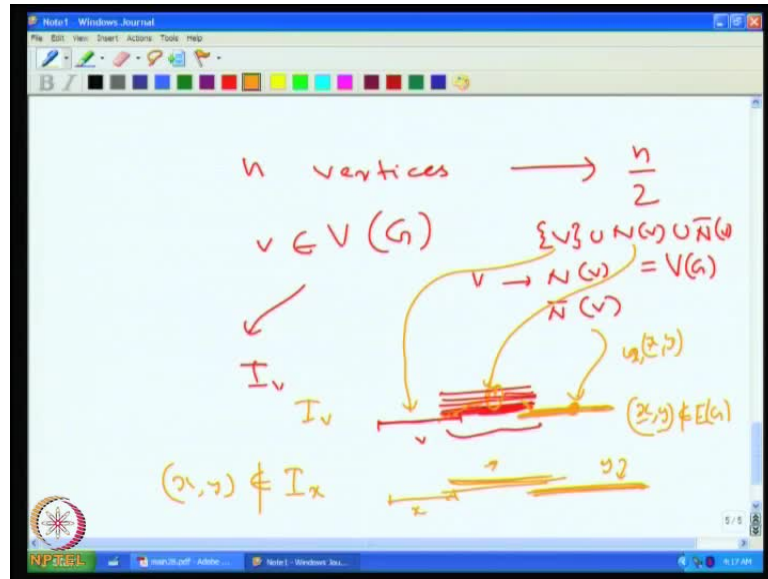 Note1 - Windows Journal
File Edit View Insert Actions Tools Help
B I
n vertices → n/2
v ∈ V(G) {v} ∪ N(v) ∪ N̄(v)
v → N(v) = V(G)
N̄(v)
I_v
I_v
v
(x,y) ∉ E(G)
(x,y) ∉ I_x
x
5/5
NPTEL
main28.pdf - Adobe ...
Note1 - Windows Jou...
4:17 AM